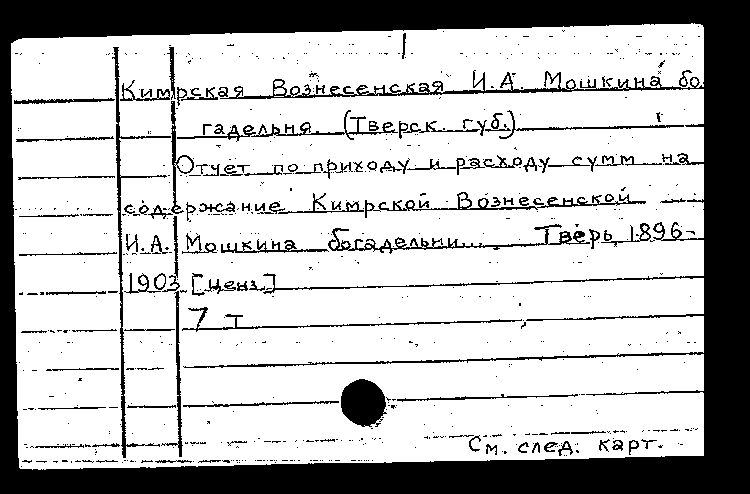 Кимрская Вознесенская И.А. Мошкина бо
гадельня. (Тверск. губ.)
Отчет по приходу и расходу сумм на
содержание Кимрской Вознесенской
И.А. Мошкина богадельни... Тверь, 1896-
1903 [ценз.]
7 т
См. след. карт.